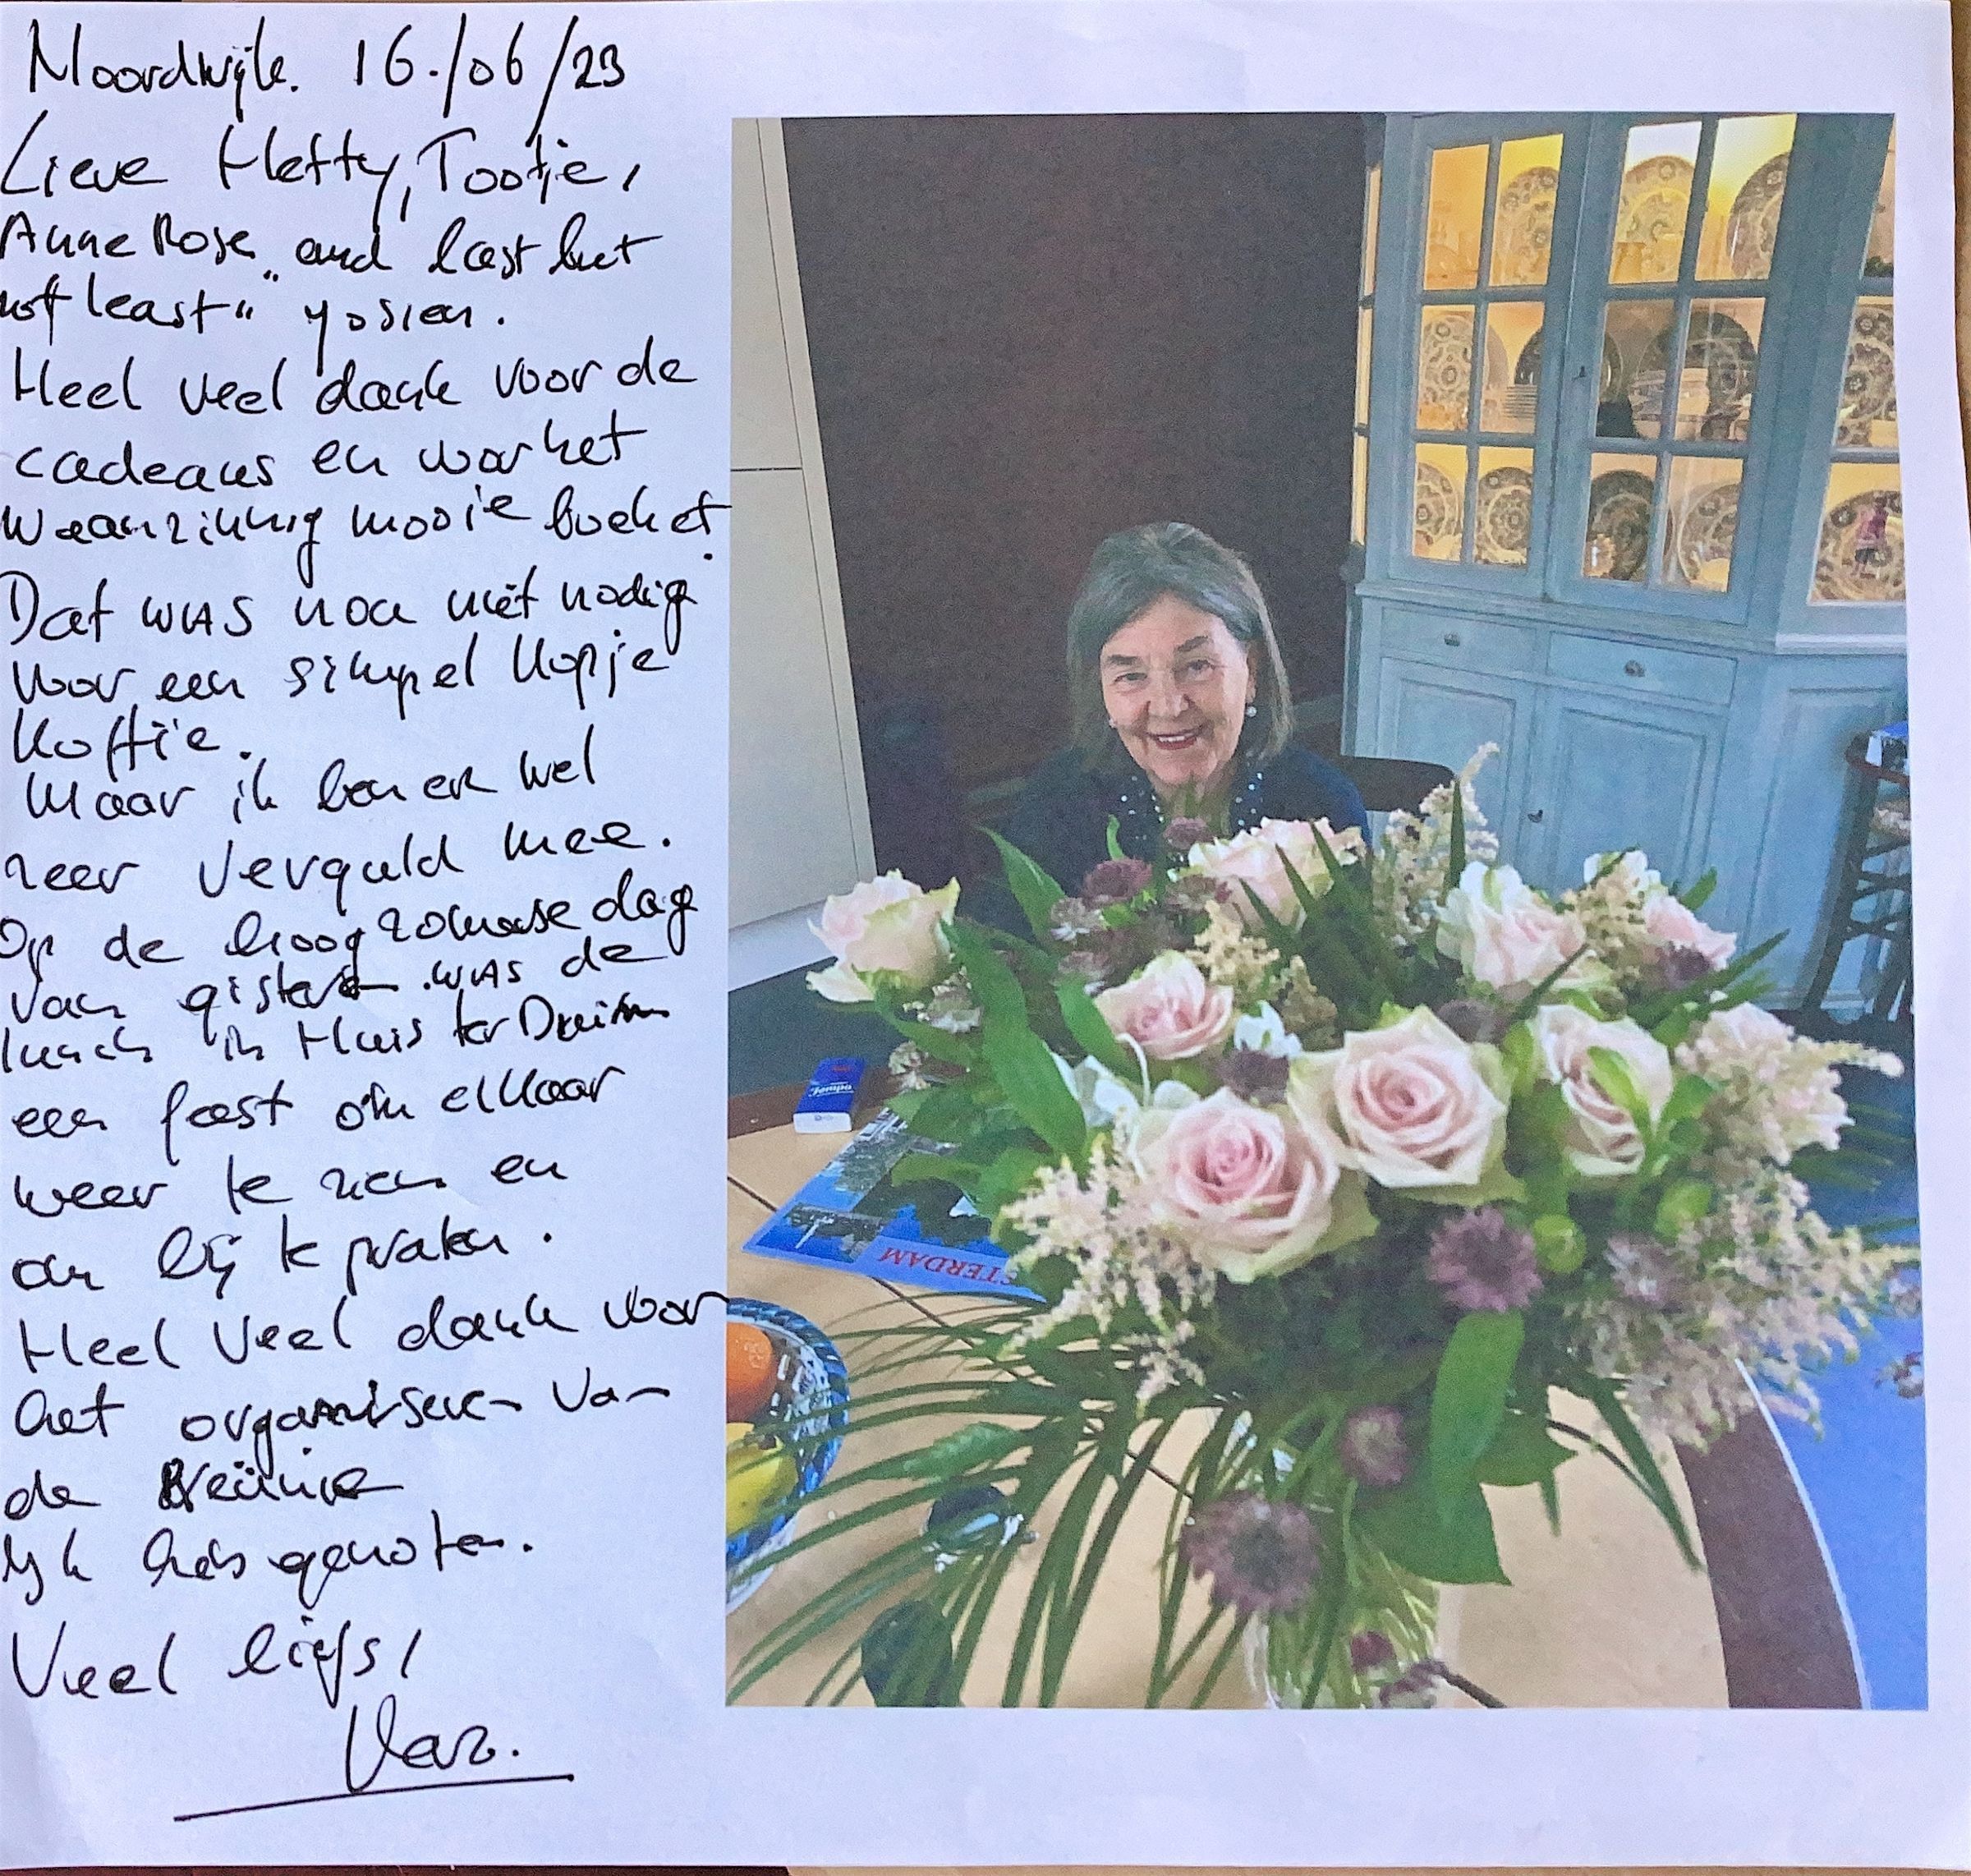 Noordwijk. 16./06/23
Lieve Hetty, Tootje,
Anne Rose „and last but
not least" Yosien.
Heel veel dank voor de
cadeaus en voor het
waanzinnig mooie boeket.
Dat was nou niet nodig
voor een simpel kopje
koffie.
Maar ik ben er wel
zeer verguld mee.
Op de hoogzomerse dag
van gisteren was de
lunch in Huis ter Duin
een feest om elkaar
weer te zien en
om bij te praten.
Heel veel dank voor
het organiseren van
de Reünie
Ijk heb genoten.
Veel liefs,
STERDAM